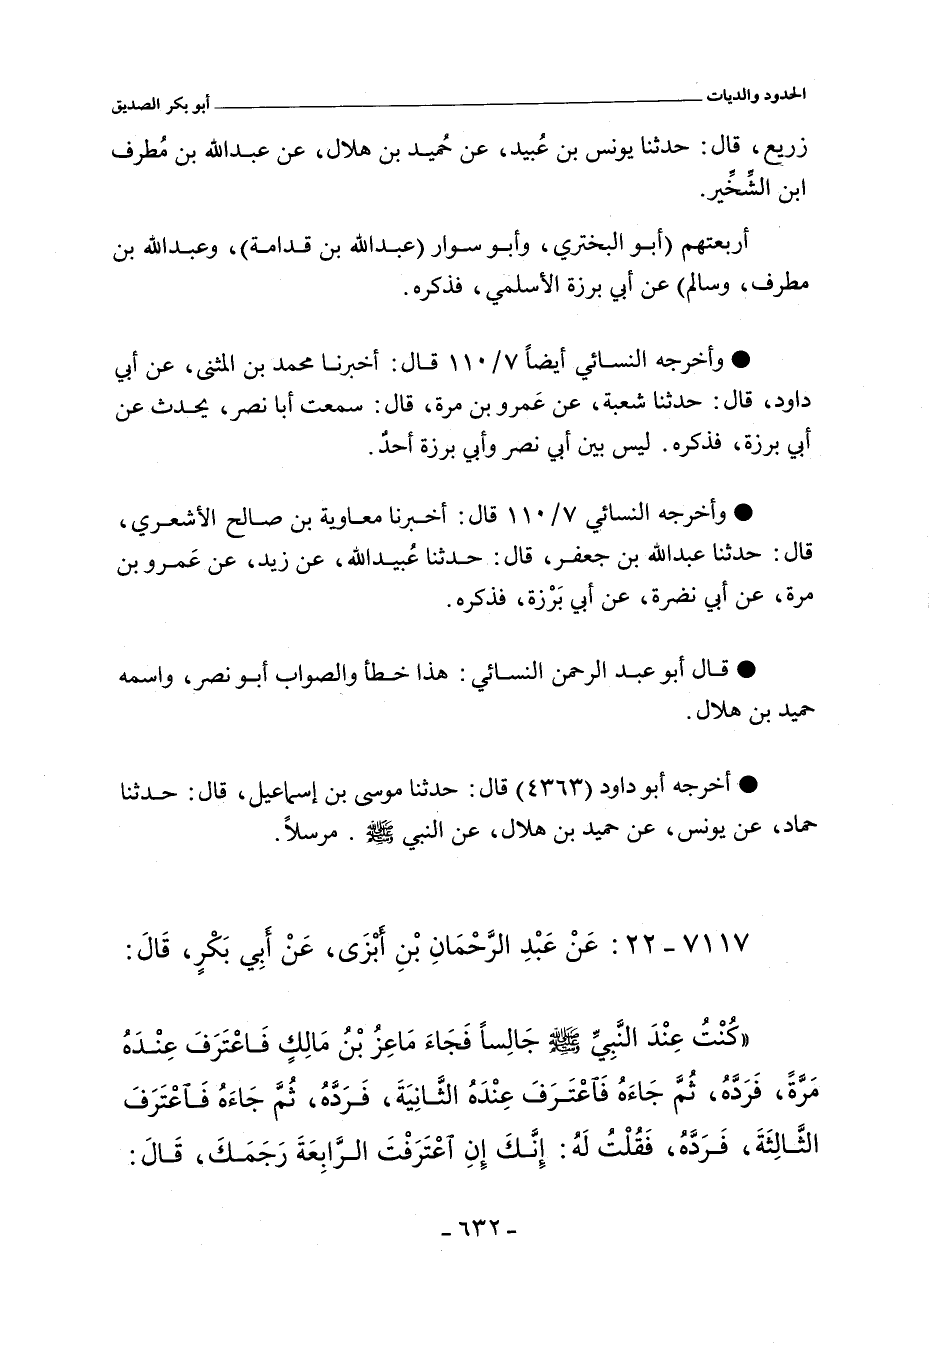 الحدود والديات ـــــــــــــــــــــــــــــــــــــ أبو بكر الصديق
زريع، قال: حدثنا يونس بن عُبيد، عن حُميد بن هلال، عن عبدالله بن مُطرف
ابن الشِّخِّير.
أربعتهم (أبو البختري، وأبو سوار (عبدالله بن قدامة)، وعبدالله بن
مطرف، وسالم) عن أبي برزة الأسلمي، فذكره.
● وأخرجه النسائي أيضاً ٧/ ١١٠ قال: أخبرنا محمد بن المثنى، عن أبي
داود، قال: حدثنا شعبة، عن عَمرو بن مرة، قال: سمعت أبا نصر، يحدث عن
أبي برزة، فذكره. ليس بين أبي نصر وأبي برزة أحدٌ.
● وأخرجه النسائي ٧/ ١١٠ قال: أخبرنا معاوية بن صالح الأشعري،
قال: حدثنا عبدالله بن جعفر، قال: حدثنا عُبيدالله، عن زيد، عن عَمرو بن
مرة، عن أبي نضرة، عن أبي بَرْزة، فذكره.
● قال أبو عبد الرحمن النسائي: هذا خطأ والصواب أبو نصر، واسمه
حميد بن هلال.
● أخرجه أبو داود (٤٣٦٣) قال: حدثنا موسى بن إسماعيل، قال: حدثنا
حماد، عن يونس، عن حميد بن هلال، عن النبي ﷺ. مرسلاً.
٧١١٧ ـ ٢٢: عَنْ عَبْدِ الرَّحْمَانِ بْنِ أَبْزَى، عَنْ أَبِي بَكْرٍ، قَالَ:
«كُنْتُ عِنْدَ النَّبِيِّ ﷺ جَالِساً فَجَاءَ مَاعِزُ بْنُ مَالِكٍ فَاعْتَرَفَ عِنْدَهُ
مَرَّةً، فَرَدَّهُ، ثُمَّ جَاءَهُ فَٱعْتَرَفَ عِنْدَهُ الثَّانِيَةَ، فَرَدَّهُ، ثُمَّ جَاءَهُ فَٱعْتَرَفَ
الثَّالِثَةَ، فَرَدَّهُ، فَقُلْتُ لَهُ: إِنَّكَ إِنِ ٱعْتَرَفْتَ الرَّابِعَةَ رَجَمَكَ، قَالَ:
ـ ٦٣٢ ـ